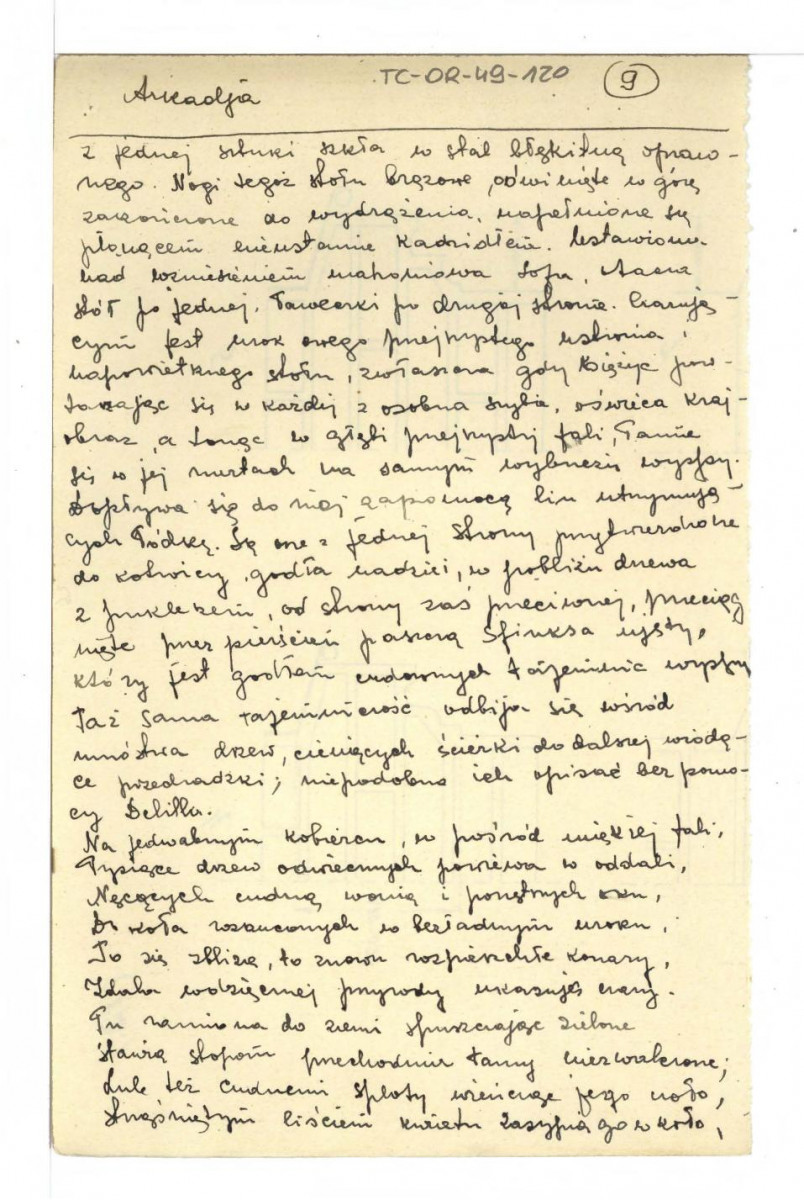 TC-OR-49-120
9
Arkadja
z jednej sztuki szkła w stal błękitną opraw-
nego. Nogi tegoż stołu brązowe, odwinięte w górę
zakończone do wydrążenia, napełnione są
płonącem nieustannie kadzidłem. Ustawiono
nad wzniesieniem mahoniowa sofa,
stół po jednej, ławeczki po drugiej stronie. Czarują-
cym jest urok owego przejrzystego ustronia,
napowietrznego stołu, zwłaszcza gdy księżyc pow-
tarzając się w każdej z osobna szybie, oświeca kraj-
obraz, a tonąc w głębi przejrzystej fali, łamie
się w jej nurtach na samym wybrzeżu wyspy.
Dopływa się do niej zapomocą lin utrzymują-
cych łódkę. Są one z jednej strony przytwierdzone
do kotwicy, godła nadziei, w pobliżu drzewa
z, od strony zaś przeciwnej, przeciąg
nięte przez pierścień paszczą Sfinksa ujęty,
który jest godłem cudownych tajemnic wyspy
Taż sama tajemniczość odbija się wśród
mnóstwa drzew, cieniących ścieżki do dalszej wiodą-
ce przechadzki; niepodobna ich opisać bez pomo-
cy Delilla.
Na jedwabnym kobiercu, w pośród miękkiej fali,
Tysiące drzew odwiecznych powiewa w oddali,
Nęcących cudną wonią i ponętnych oku,
Do koła rzuconych w bezładnym uroku,
To się zbliża, to znowu rozpierzchłe konary,
Zdala wdzięcznej przyrody ukazują czary.
Tu ramiona do ziemi spuszczając zielone
Stawią stopom przechodnia tamy niezwalczone;
Lub też cudnemi sploty wieńcząc jego czoło,
Strząśniętym liściem kwiatu zasypują go w koło,